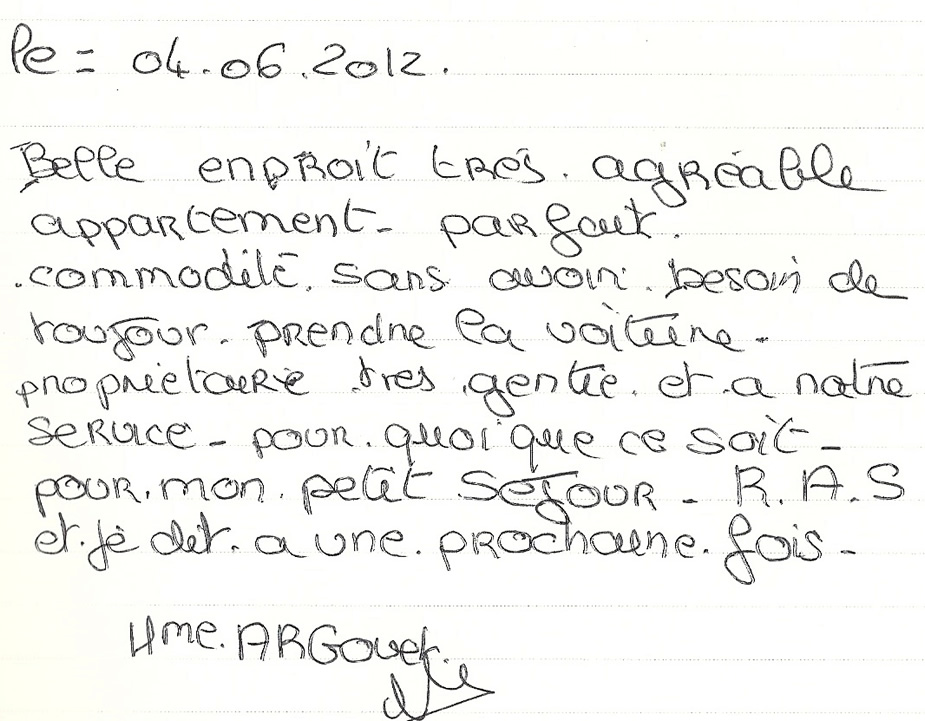 le = 04.06.2012.
Belle endroit très. agréable
appartement - parfait.
.commodité. sans avoir. besoin de
toujour. prendre la voiture -
propriétaire très gentie. et a notre
service - pour. quoi que ce soit -
pour. mon. petit séjour - R.A.S
et. je dit. a une. prochaine. fois -
Mme. ARGOUET.